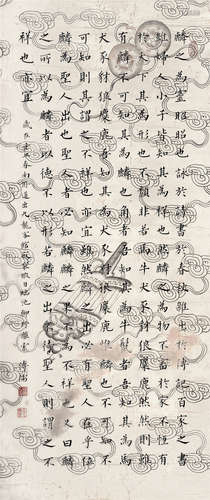 麟之為靈昭昭也詠於詩書於春秋雜出於傳記百家之書
雖婦人小子皆知其為祥也然麟之為物不畜於家不恆有
於天下其為形也不類非若馬牛犬豕豺狼麋鹿然然則雖
有麟不可知其為麟也角者吾知其為牛鬣者吾知其為馬
犬豕豺狼麋鹿吾知其為犬豕豺狼麋鹿惟麟也不可知不
可知則其謂之不祥也亦宜雖然麟之出必有聖人在乎位
麟為聖人出也聖人者必知麟麟之果不為不祥也又曰麟
之所以為麟者以德不以形若麟之出不待聖人則謂之不
祥也亦宜
溥儒